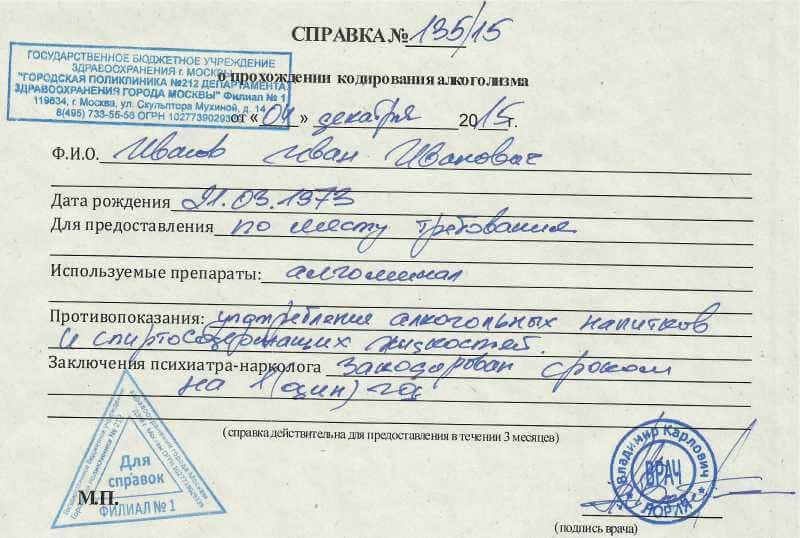 СПРАВКА № 135/15
ГОСУДАРСТВЕННОЕ БЮДЖЕТНОЕ УЧРЕЖДЕНИЕ
ЗДРАВООХРАНЕНИЯ г. МОСКВЫ
"ГОРОДСКАЯ ПОЛИКЛИНИКА №212 ДЕПАРТАМЕНТА
ЗДРАВООХРАНЕНИЯ ГОРОДА МОСКВЫ" Филиал № 1
119634, г. Москва, ул. Скульптора Мухиной, д. 14
8(495) 733-55-56 ОГРН
о прохождении кодирования алкоголизма
от « 04 » декабря 2015 г.
Ф.И.О. Иванов Иван Иванович
Дата рождения 21.03.1973
Для предоставления по месту требования
Используемые препараты: алгоминал
Противопоказания: употребление алкогольных напитков
и спиртосодержащих жидкостей.
Заключения психиатра-нарколога Закодирован сроком
на 1 (один) год
(справка действительна для предоставления в течении 3 месяцев)
Для
справок
ФИЛИАЛ № 1
М.П.
Владимир Карлович
ВРАЧ
(подпись врача)